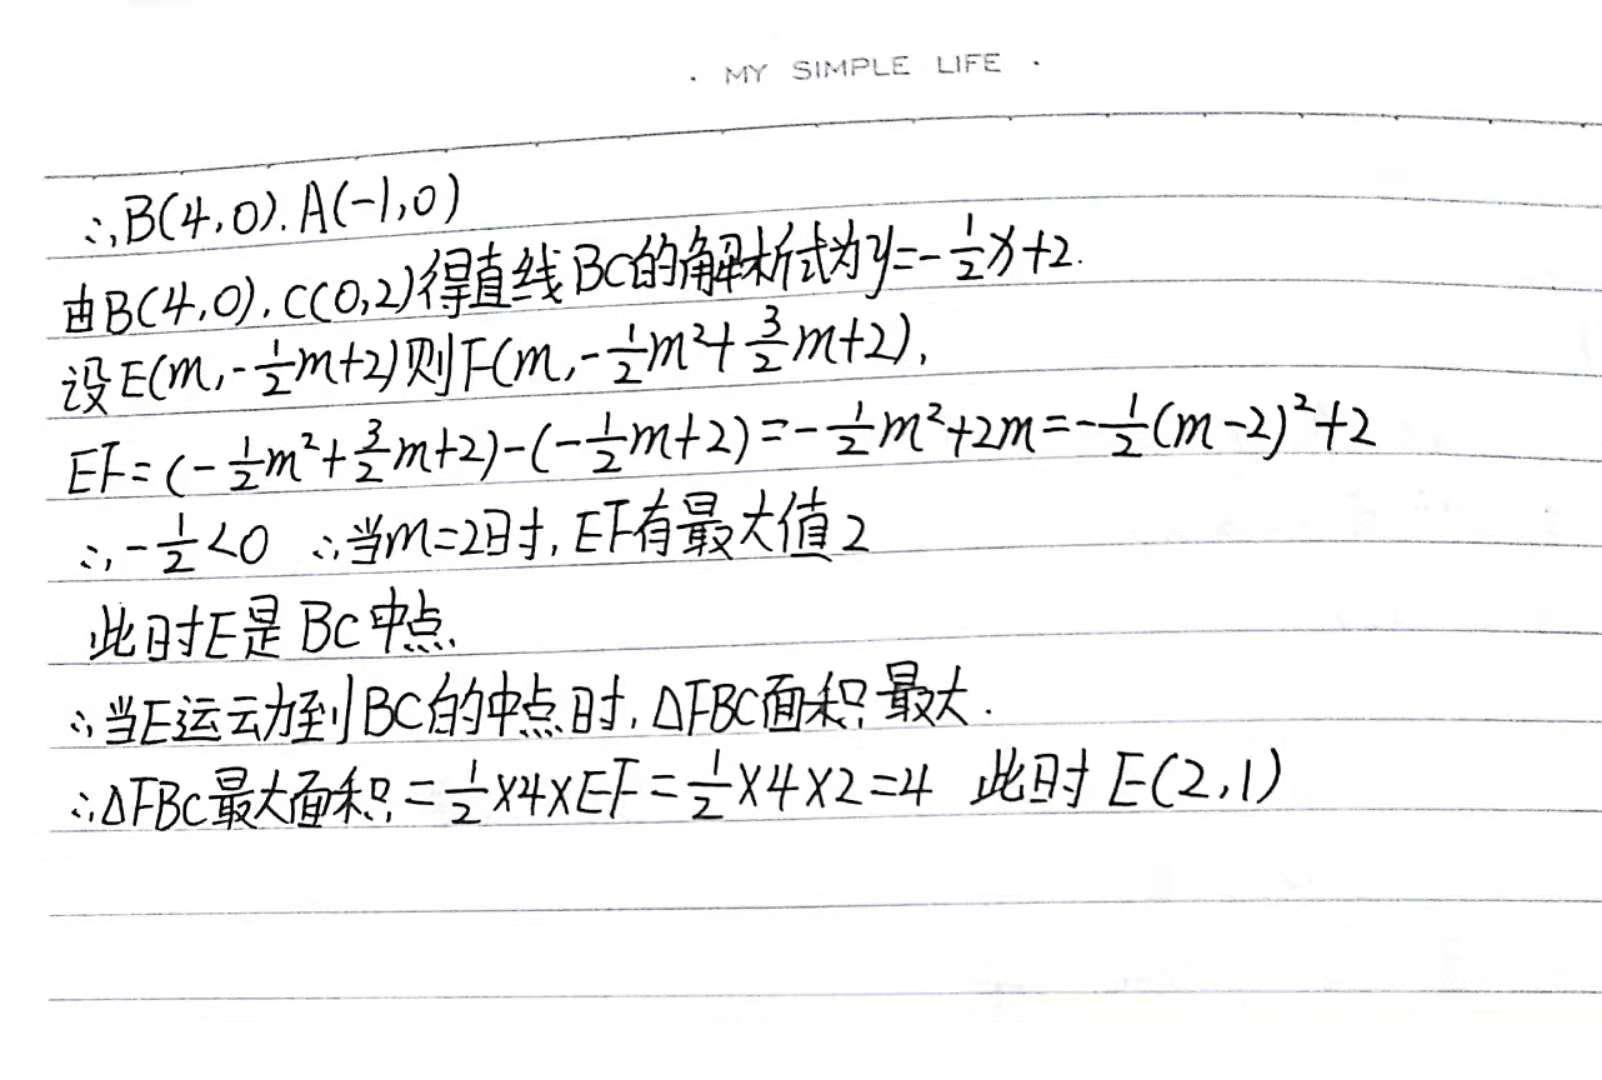 · MY SIMPLE LIFE ·
∴B(4,0).A(-1,0)
由B(4,0),C(0,2)得直线BC的解析式为y=-1/2x+2.
设E(m,-1/2m+2)则F(m,-1/2m²+3/2m+2),
EF=(-1/2m²+3/2m+2)-(-1/2m+2)=-1/2m²+2m=-1/2(m-2)²+2
∴-1/2<0 ∴当m=2时,EF有最大值2
此时E是BC中点.
∴当E运动到BC的中点时,△FBC面积最大.
∴△FBC最大面积=1/2×4×EF=1/2×4×2=4 此时E(2,1)